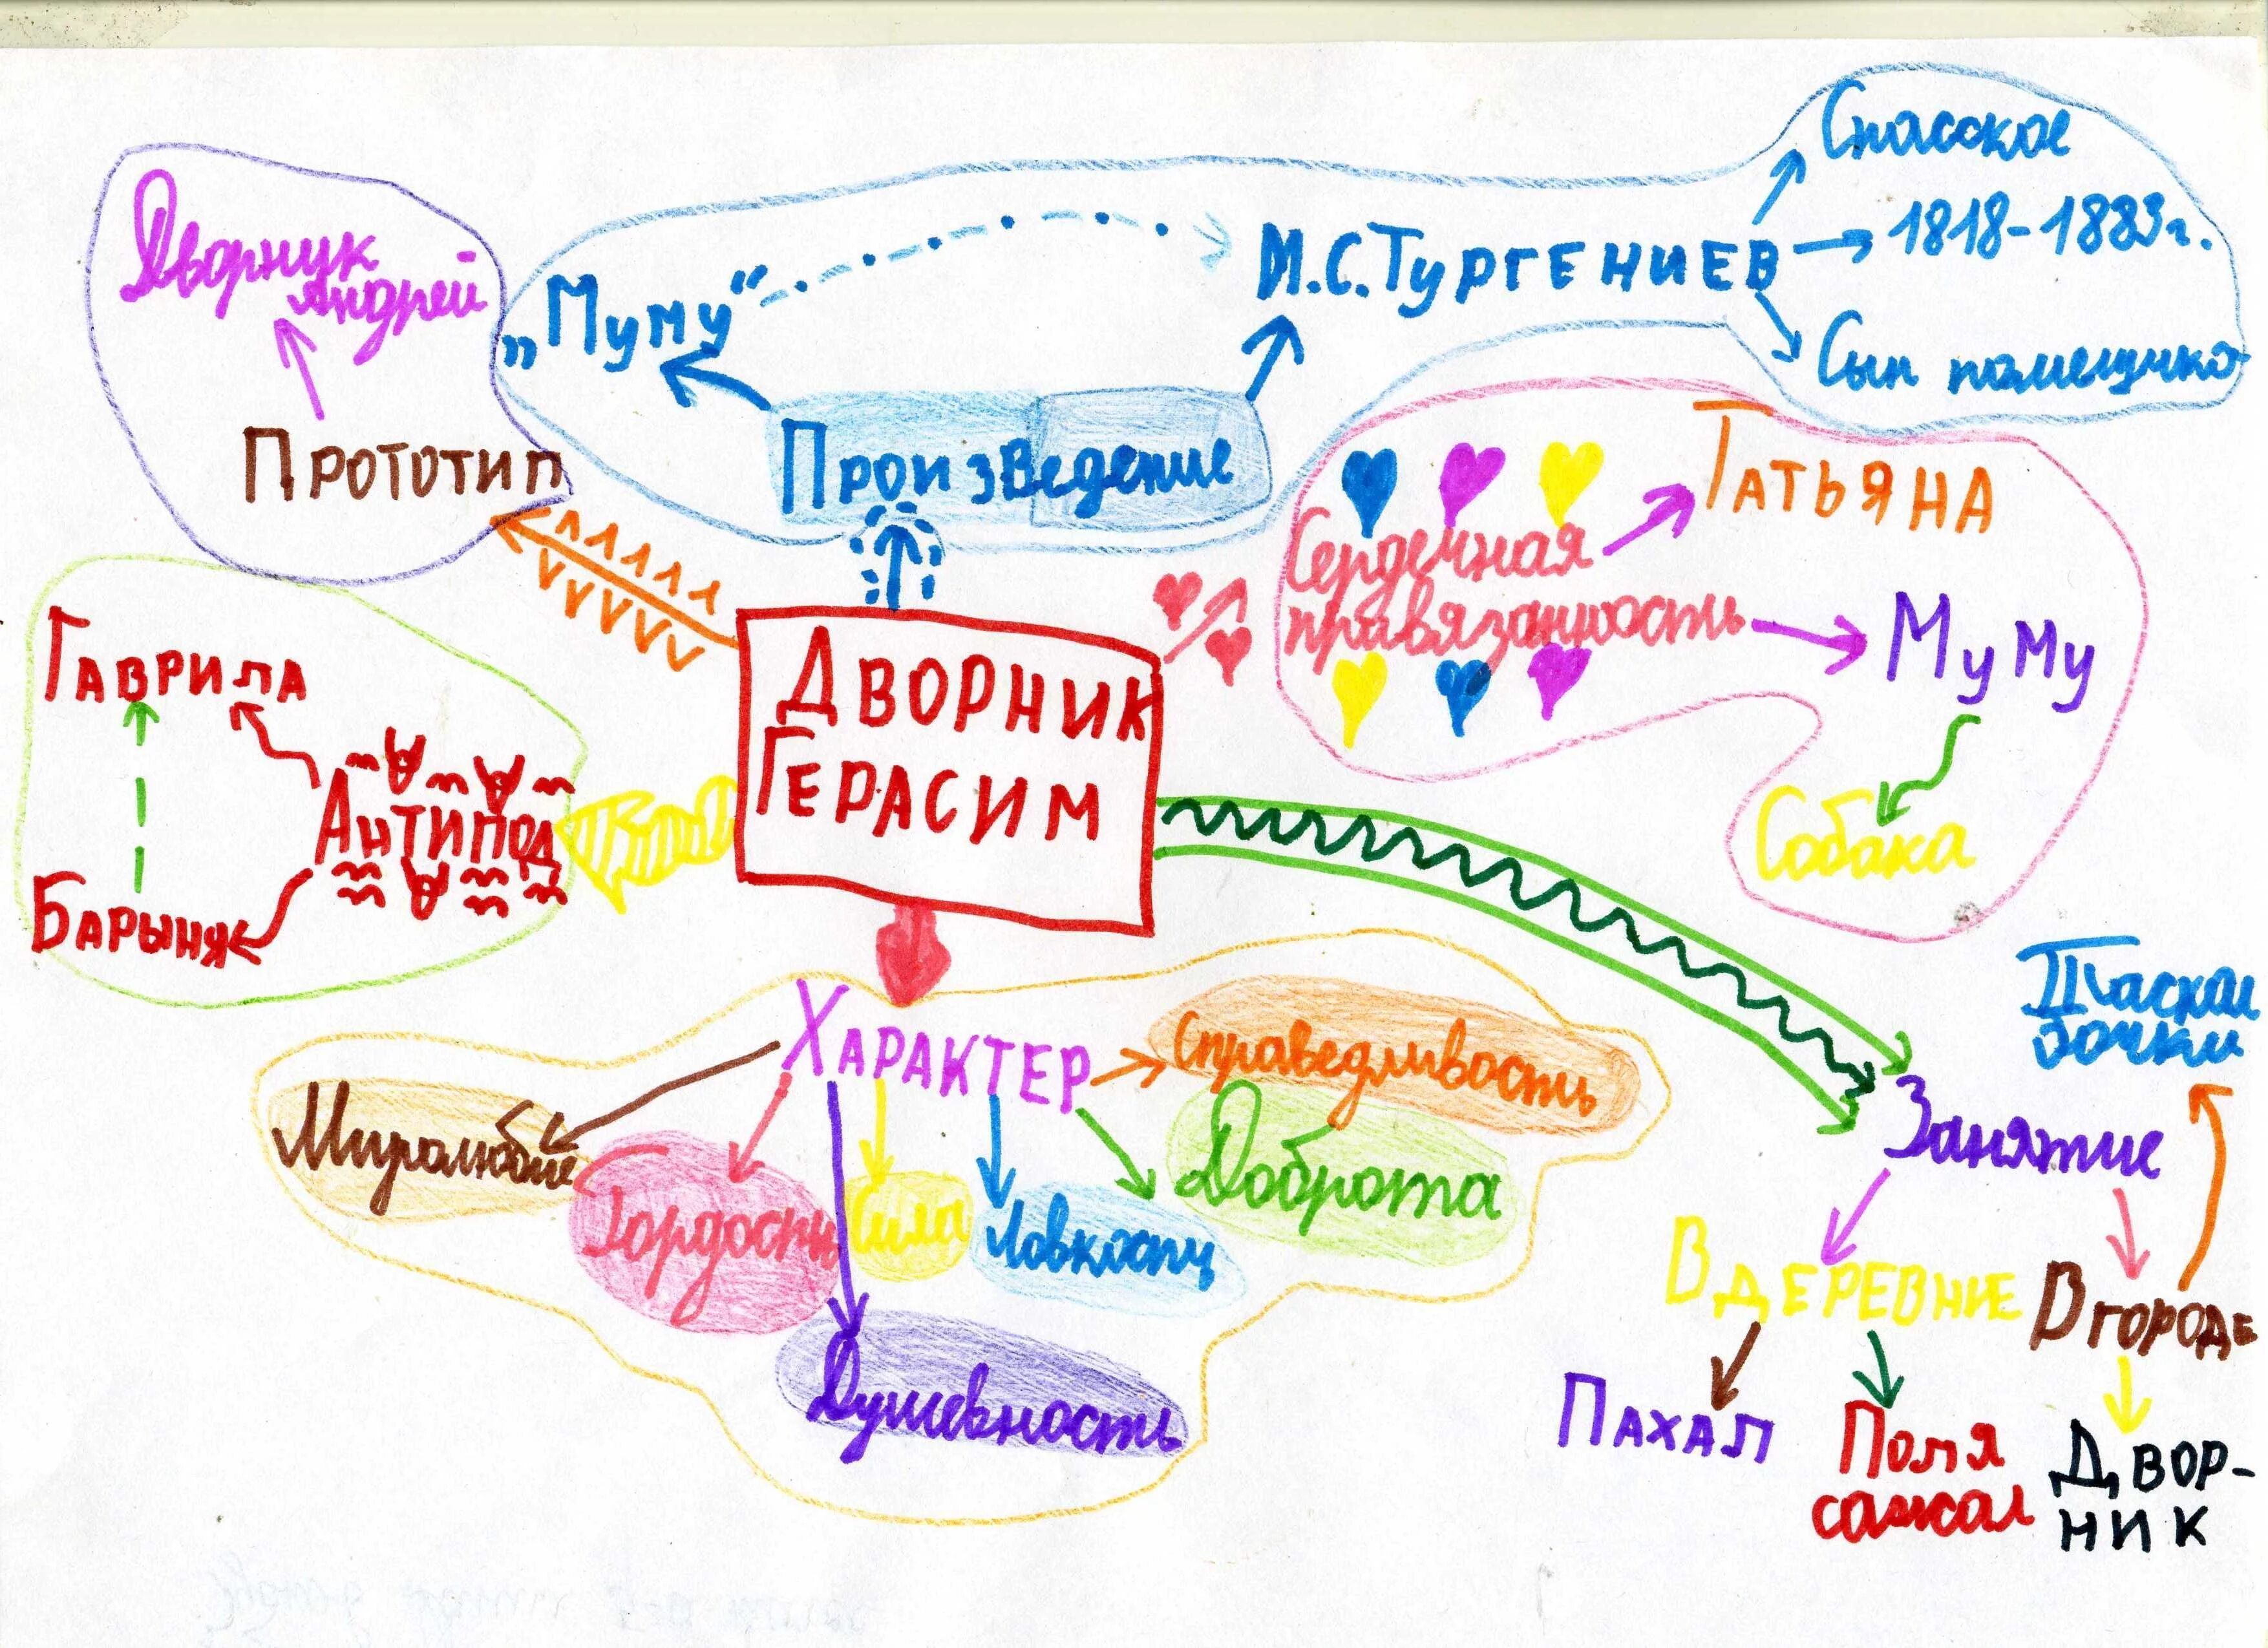 Спасское
1818-1883г.
И.С.ТУРГЕНИЕВ
Сын помещика
Дворник
Андрей
„Муму“
ПРОТОТИП
Произведение
ТАТЬЯНА
Сердечная
привязанность
МУМУ
Собака
ГАВРИЛА
АНТИПОД
БАРЫНЯ
ДВОРНИК
ГЕРАСИМ
ХАРАКТЕР
Справедливость
Миролюбие
Гордость
Сила
Ловкость
Доброта
Душевность
Таскал
бочки
Занятие
В ДЕРЕВНЕ
В ГОРОДЕ
ПАХАЛ
Поля
сажал
ДВОР-
НИК